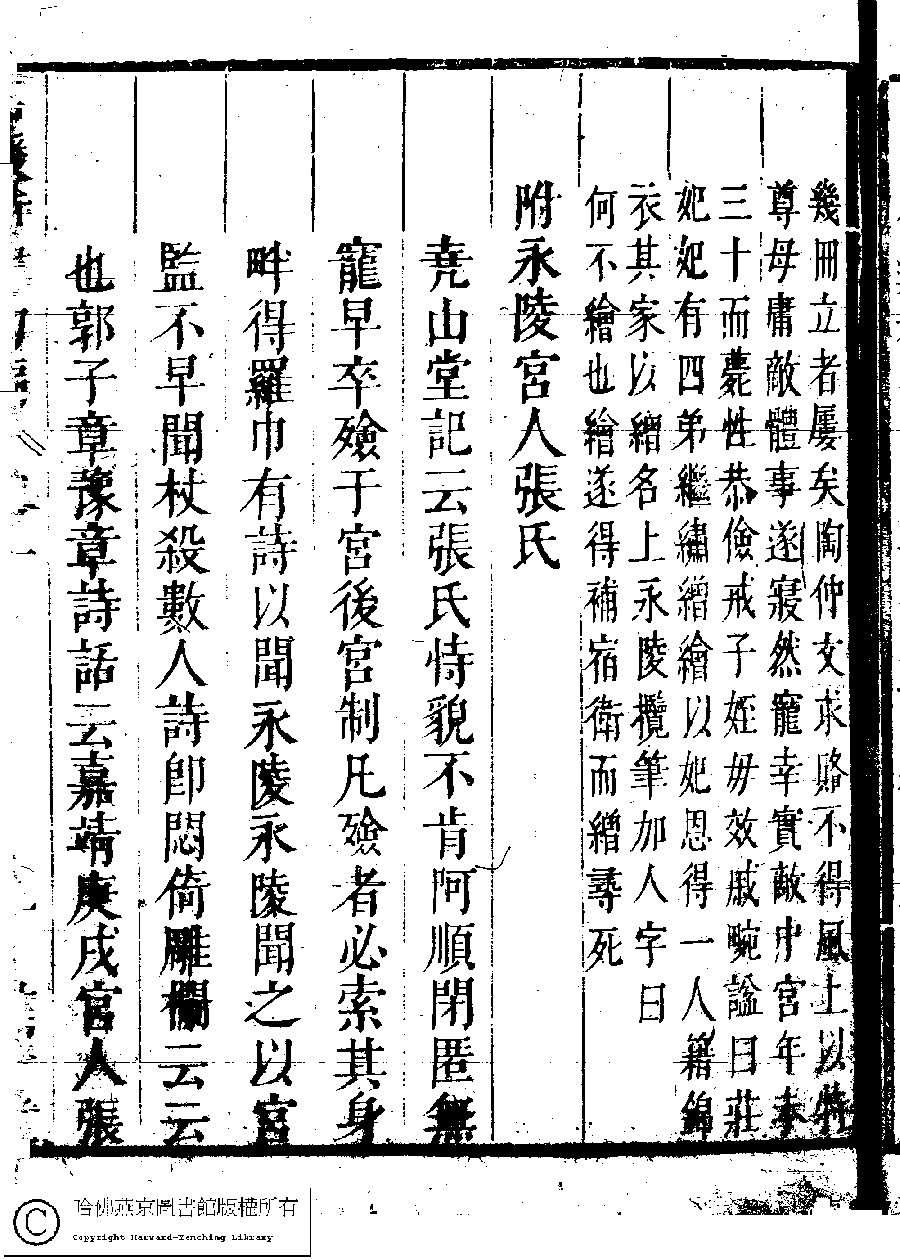 幾冊立者屢矣陶仲文求賂不得風上以特
尊母庸敵體事遂寢然寵幸實敵中宮年未
三十而薨性恭儉戒子姪毋效戚畹諡曰莊
妃妃有四弟繼繡繒繪以妃恩得一人籍錦
衣其家以繒名上永陵攬筆加人字曰
何不繪也繪遂得補宿衛而繒尋死
附永陵宮人張氏
堯山堂記云張氏恃貌不肯阿順閉匿無
寵早卒殮于宮後宮制凡殮者必索其身
畔得羅巾有詩以聞永陵永陵聞之以宮
監不早聞杖殺數人詩卽悶倚雕欄云云
也郭子章豫章詩話云嘉靖庚戌宮人張
哈佛燕京圖書館版權所有
Copyright Harvard-Yenching Library